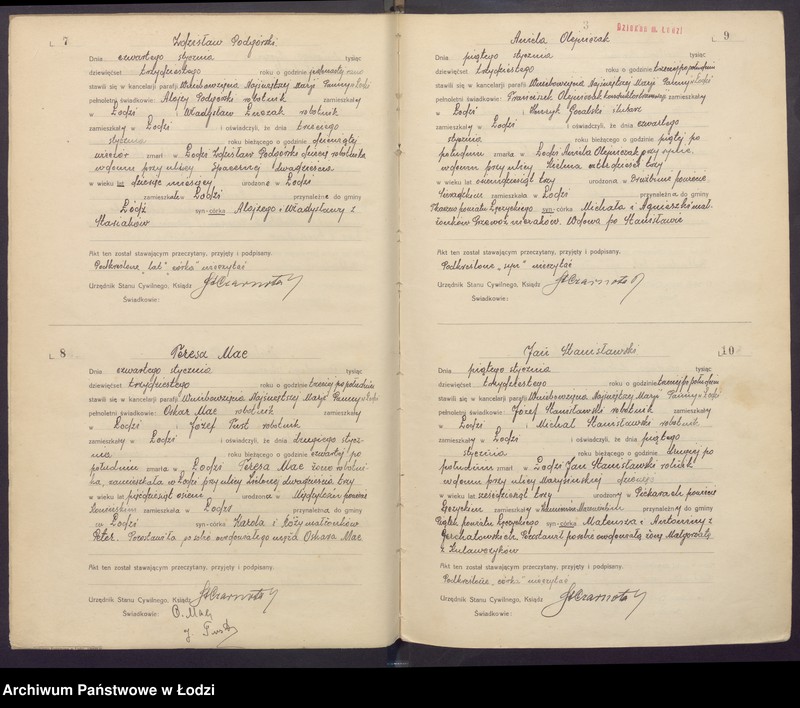 7
Zdzisław Podgórski.
Dnia czwartego stycznia tysiąc
dziewięćset trzydziestego roku o godzinie jedenastej rano
stawili się w kancelarji parafji Wniebowzięcia Najświętszej Marji Panny w Łodzi
pełnoletni świadkowie: Alojzy Podgórski robotnik zamieszkały
w Łodzi i Władysław robotnik
zamieszkały w Łodzi i oświadczyli, że dnia trzeciego
stycznia roku bieżącego o godzinie dziewiątej
wieczór zmarł w Łodzi Zdzisław Podgórski dziecię robotnika
w domu przy ulicy Spacernej dwadzieścia
w wieku lat dziesięć miesięcy urodzony w Łodzi
zamieszkałe w Łodzi przynależne do gminy
Łódź syn-córka Alojzego i Władysławy z
Stasiaków
Akt ten został stawającym przeczytany, przyjęty i podpisany.
Podkreślone „lat" „córka" nieczytać
Urzędnik Stanu Cywilnego, Ksiądz StCzarnota
Świadkowie:
8
Teresa Mac
Dnia czwartego stycznia tysiąc
dziewięćset trzydziestego roku o godzinie trzeciej po południu
stawili się w kancelarji parafji Wniebowzięcia Najświętszej Marji Panny w Łodzi
pełnoletni świadkowie: Oskar Mac robotnik zamieszkały
w Łodzi i Józef Pust robotnik
zamieszkały w Łodzi i oświadczyli, że dnia drugiego stycz-
nia roku bieżącego o godzinie czwartej po
południu zmarła w Łodzi Teresa Mac żona robotni-
ka, zamieszkała w Łodzi przy ulicy Zielonej dwadzieścia trzy
w wieku lat pięćdziesiąt osiem urodzona w powiecie
zamieszkała w Łodzi przynależna do gminy
Łodzi syn-córka Karola i Róży małżonków
Peter. Pozostawiła po sobie owdowiałego męża Oskara Mac
Akt ten został stawającym przeczytany, przyjęty i podpisany.
Urzędnik Stanu Cywilnego, Ksiądz StCzarnota
Świadkowie: O. Mac
J. Pust
3
Dziecko m. Łodzi
9
Aniela Olejniczak
Dnia piątego stycznia tysiąc
dziewięćset trzydziestego roku o godzinie trzeciej po południu
stawili się w kancelarji parafji Wniebowzięcia Najświętszej Marji Panny w Łodzi
pełnoletni świadkowie: Franciszek Olejniczak zamieszkały
w Łodzi i Henryk Góralski
zamieszkały w Łodzi i oświadczyli, że dnia czwartego
stycznia roku bieżącego o godzinie piątej po
południu zmarła w Łodzi Aniela Olejniczak przy synie,
w domu przy ulicy trzy
w wieku lat osiemdziesiąt trzy urodzona w Drużbinie powiecie
Sieradzkim zamieszkała w Łodzi przynależna do gminy
Tkaczew powiatu Łęczyckiego syn-córka Michała i Agnieszki mał-
żonków Wdowa po Stanisławie
Akt ten został stawającym przeczytany, przyjęty i podpisany.
Podkreślone „syn" nieczytać
Urzędnik Stanu Cywilnego, Ksiądz StCzarnota
Świadkowie:
10
Jan Stanisławski
Dnia piątego stycznia tysiąc
dziewięćset trzydziestego roku o godzinie trzeciej po południu
stawili się w kancelarji parafji Wniebowzięcia Najświętszej Marji Panny w Łodzi
pełnoletni świadkowie: Józef Stanisławski robotnik zamieszkały
w Łodzi i Michał Stanisławski robotnik
zamieszkały w Łodzi i oświadczyli, że dnia piątego
stycznia roku bieżącego o godzinie drugiej po
południu zmarł w Łodzi Jan Stanisławski rolnik
w domu przy ulicy Marysińskiej
w wieku lat sześćdziesiąt trzy urodzony w Piekarach powiecie
Łęczyckim zamieszkały w przynależny do gminy
Piątek powiatu Łęczyckiego syn-córka Mateusza i Antoniny z
Pozostawił po sobie owdowiałą żonę Małgorzatę
z Kulawczyków
Akt ten został stawającym przeczytany, przyjęty i podpisany.
Podkreślone „córka" nieczytać
Urzędnik Stanu Cywilnego, Ksiądz StCzarnota
Świadkowie:
Archiwum Państwowe w Łodzi